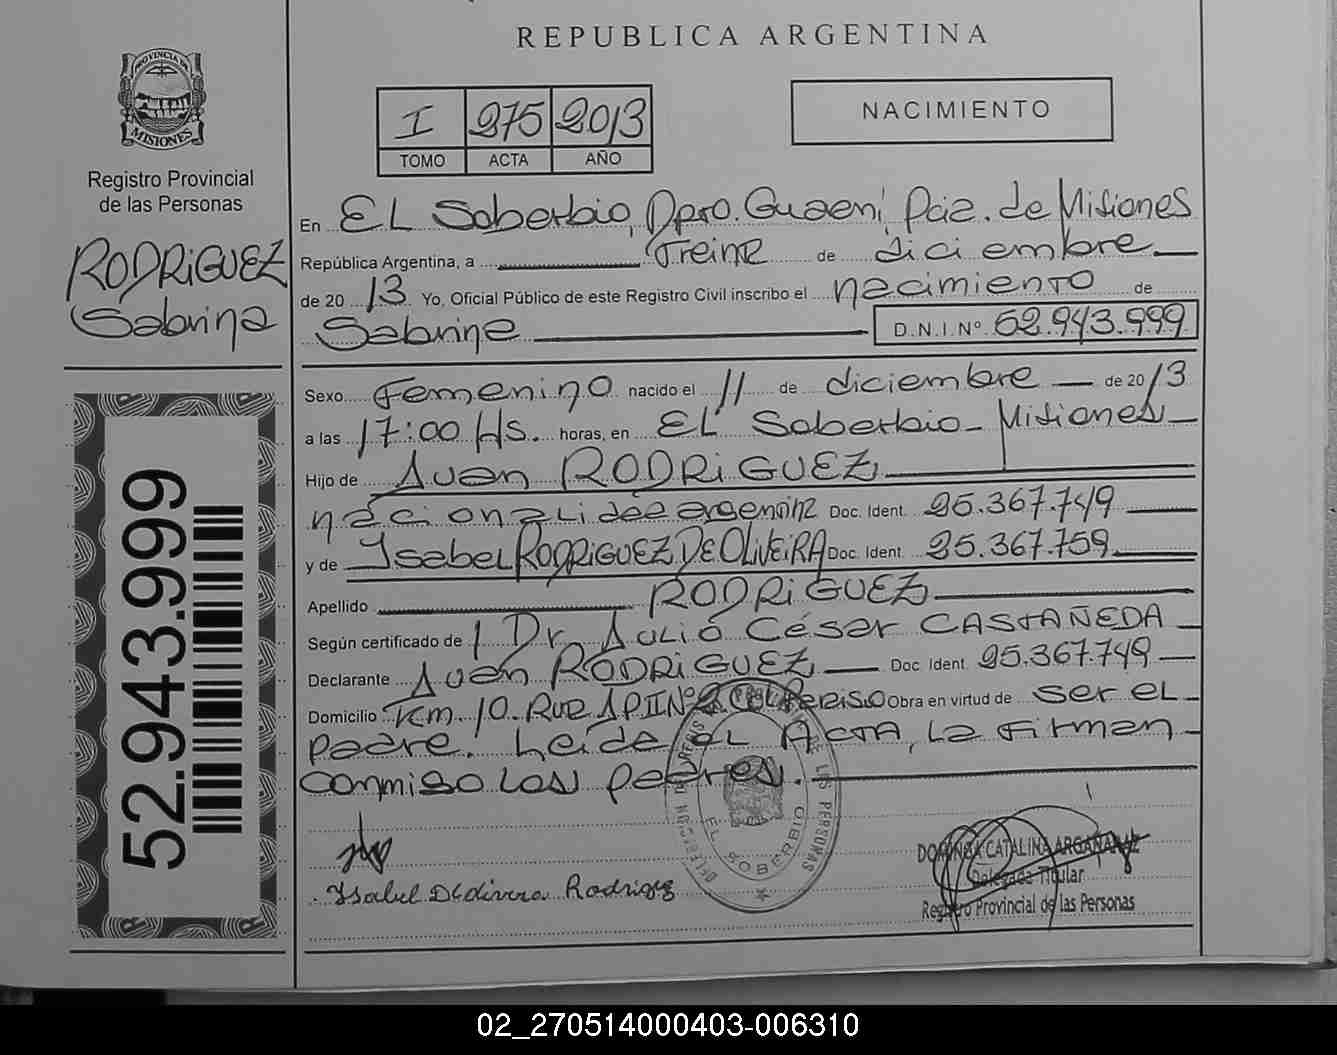 REPUBLICA ARGENTINA
PROVINCIA DE
MISIONES
Registro Provincial
de las Personas
RODRIGUEZ
Sabrina
52.943.999
I 275 2013
TOMO ACTA AÑO
NACIMIENTO
En EL Soberbio, Dpto. Guaraní, Pcia. de Misiones
República Argentina, a Treinta de diciembre
de 2013 Yo, Oficial Público de este Registro Civil inscribo el nacimiento de
Sabrina D.N.I. Nº 52.943.999
Sexo Femenino nacido el 11 de diciembre de 2013
a las 17:00 Hs. horas, en EL Soberbio - Misiones
Hijo de Juan RODRIGUEZ
nacionalidad argentina Doc. Ident. 25.367.749
y de Ysabel RODRIGUEZ DE OLIVEIRA Doc. Ident. 25.367.759
Apellido RODRIGUEZ
Según certificado de Dr. Julio César CASTAÑEDA
Declarante Juan RODRIGUEZ Doc Ident. 25.367.749
Domicilio Km. 10. Ruta Obra en virtud de ser EL
padre. Leida el Acta, La Firman
conmigo Los padres.
Ysabel Deolivera Rodriguez
EL SOBERBIO
DE LAS PERSONAS
CATALINA ARGAÑARAZ
Delegada Titular
Registro Provincial de las Personas
02_270514000403-006310